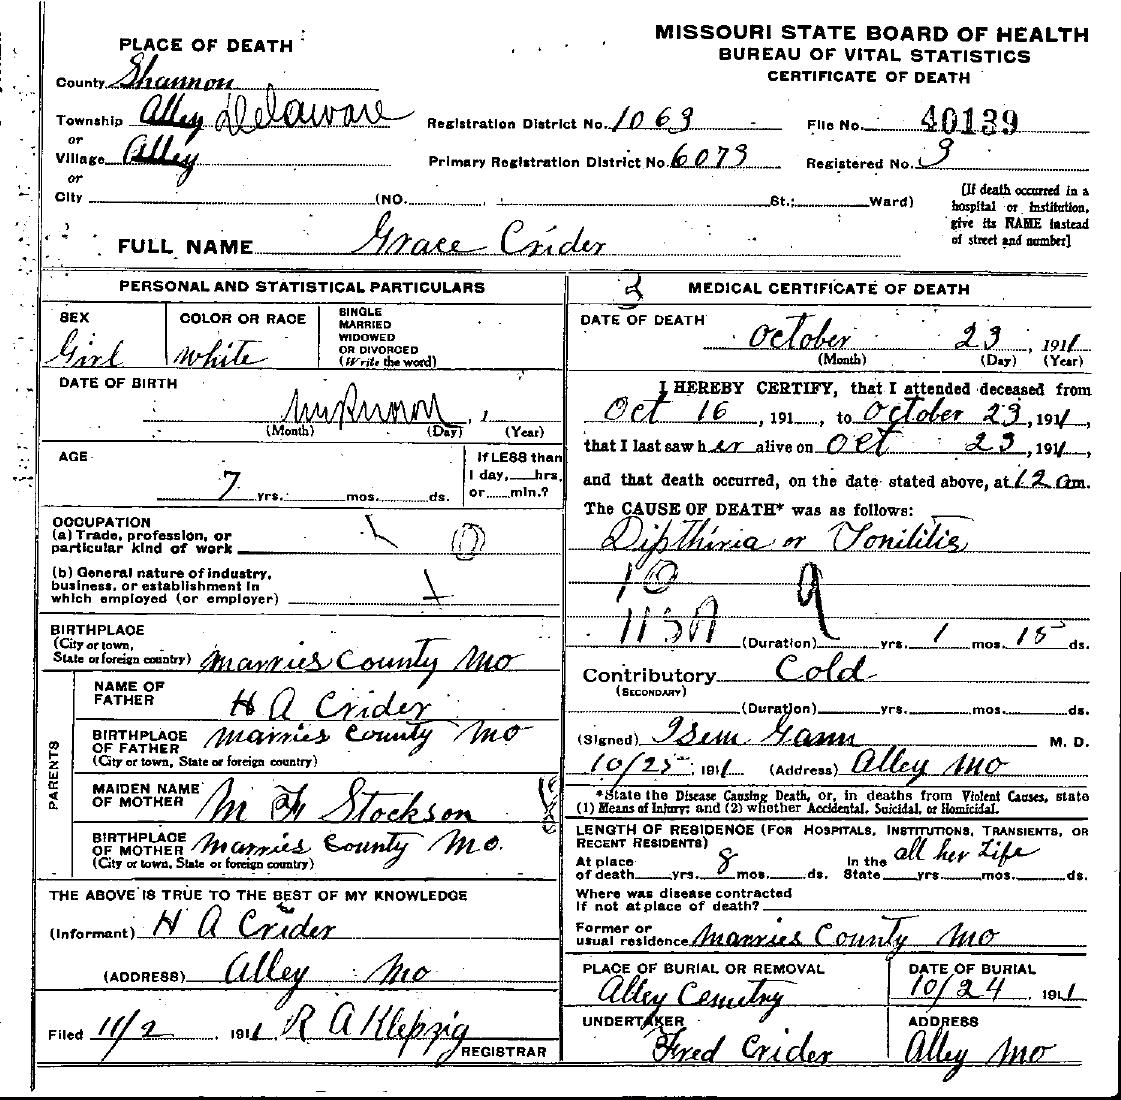 MISSOURI STATE BOARD OF HEALTH
BUREAU OF VITAL STATISTICS
CERTIFICATE OF DEATH
PLACE OF DEATH
County Shannon
Township Alley Delaware
or
Village Alley
or
City (NO. St.; Ward)
Registration District No. 1063
File No. 40139
Primary Registration District No. 6073
Registered No. 3
[If death occurred in a
hospital or institution,
give its NAME instead
of street and number]
FULL NAME Grace Crider
PERSONAL AND STATISTICAL PARTICULARS
SEX
Girl
COLOR OR RACE
White
SINGLE
MARRIED
WIDOWED
OR DIVORCED
(Write the word)
DATE OF BIRTH
unknown , 1
(Month) (Day) (Year)
AGE
7 yrs. mos. ds.
If LESS than
1 day, hrs.
or min.?
OCCUPATION
(a) Trade, profession, or
particular kind of work
(b) General nature of industry,
business, or establishment in
which employed (or employer)
BIRTHPLACE
(City or town,
State or foreign country) Marries County Mo
PARENTS
NAME OF
FATHER H A Crider
BIRTHPLACE
OF FATHER Marries County Mo
(City or town, State or foreign country)
MAIDEN NAME
OF MOTHER M F Stockson
BIRTHPLACE
OF MOTHER Marries County Mo.
(City or town, State or foreign country)
THE ABOVE IS TRUE TO THE BEST OF MY KNOWLEDGE
(Informant) H A Crider
(ADDRESS) Alley Mo
Filed 11/2 , 1911 R A Klepzig
REGISTRAR
3 MEDICAL CERTIFICATE OF DEATH
DATE OF DEATH
October 23 , 1911
(Month) (Day) (Year)
I HEREBY CERTIFY, that I attended deceased from
Oct 16 , 191 , to October 23, 1911,
that I last saw her alive on Oct 23, 1911,
and that death occurred, on the date stated above, at 12 am.
The CAUSE OF DEATH* was as follows:
Dipthiria or Tonilitis
10 9
115A (Duration) yrs. 1 mos. 15 ds.
Contributory Cold
(SECONDARY)
(Duration) yrs. mos. ds.
(Signed) Isem Gann M. D.
10/25, 1911 (Address) Alley Mo
*State the Disease Causing Death, or, in deaths from Violent Causes, state
(1) Means of Injury; and (2) whether Accidental, Suicidal, or Homicidal.
LENGTH OF RESIDENCE (FOR HOSPITALS, INSTITUTIONS, TRANSIENTS, OR
RECENT RESIDENTS)
all her Life
At place In the
of death yrs. 8 mos. ds. State yrs. mos. ds.
Where was disease contracted
if not at place of death?
Former or
usual residence Marries County Mo
PLACE OF BURIAL OR REMOVAL
Alley Cemetry
DATE OF BURIAL
10/24 , 1911
UNDERTAKER
Fred Crider
ADDRESS
Alley Mo